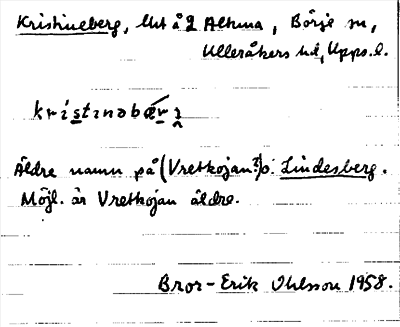 Kristineberg, lht å 2 Altuna, Börje sn,
Ulleråkers hd, Upps. l.
kristinəbær
Äldre namn på (Vretkojan?) o. Lindesberg.
Möjl. är Vretkojan äldre.
Bror-Erik Ohlsson 1958.